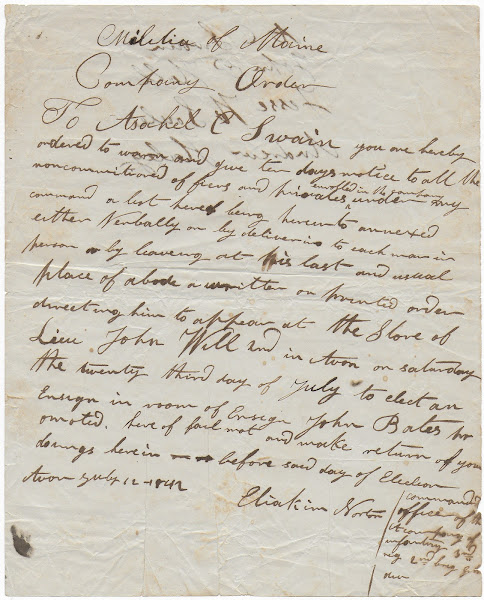 Militia of Maine
Company Order
To Asahel C Swain you are hereby
ordered to warn and give ten days notice to all the
enrolled in the
noncommitioned oficers and privates under my
command a list hereof being hereunto annexed
either Verbally or by delivering to each man in
person or by leaveng at his last and usual
place of abode a written or printed order
directing him to appear at the Store of
Lieu John Will 2nd in Avon on saturday
the twenty third day of July to elect an
Ensign in room of Ensign John Bates pr
omoted. here of fail not and make return of your
doungs herein before said day of Election
Avon July 12 1842
Eliakim Norton
command
office of the
A company of
infantry 3rd
reg 2nd brig 8th